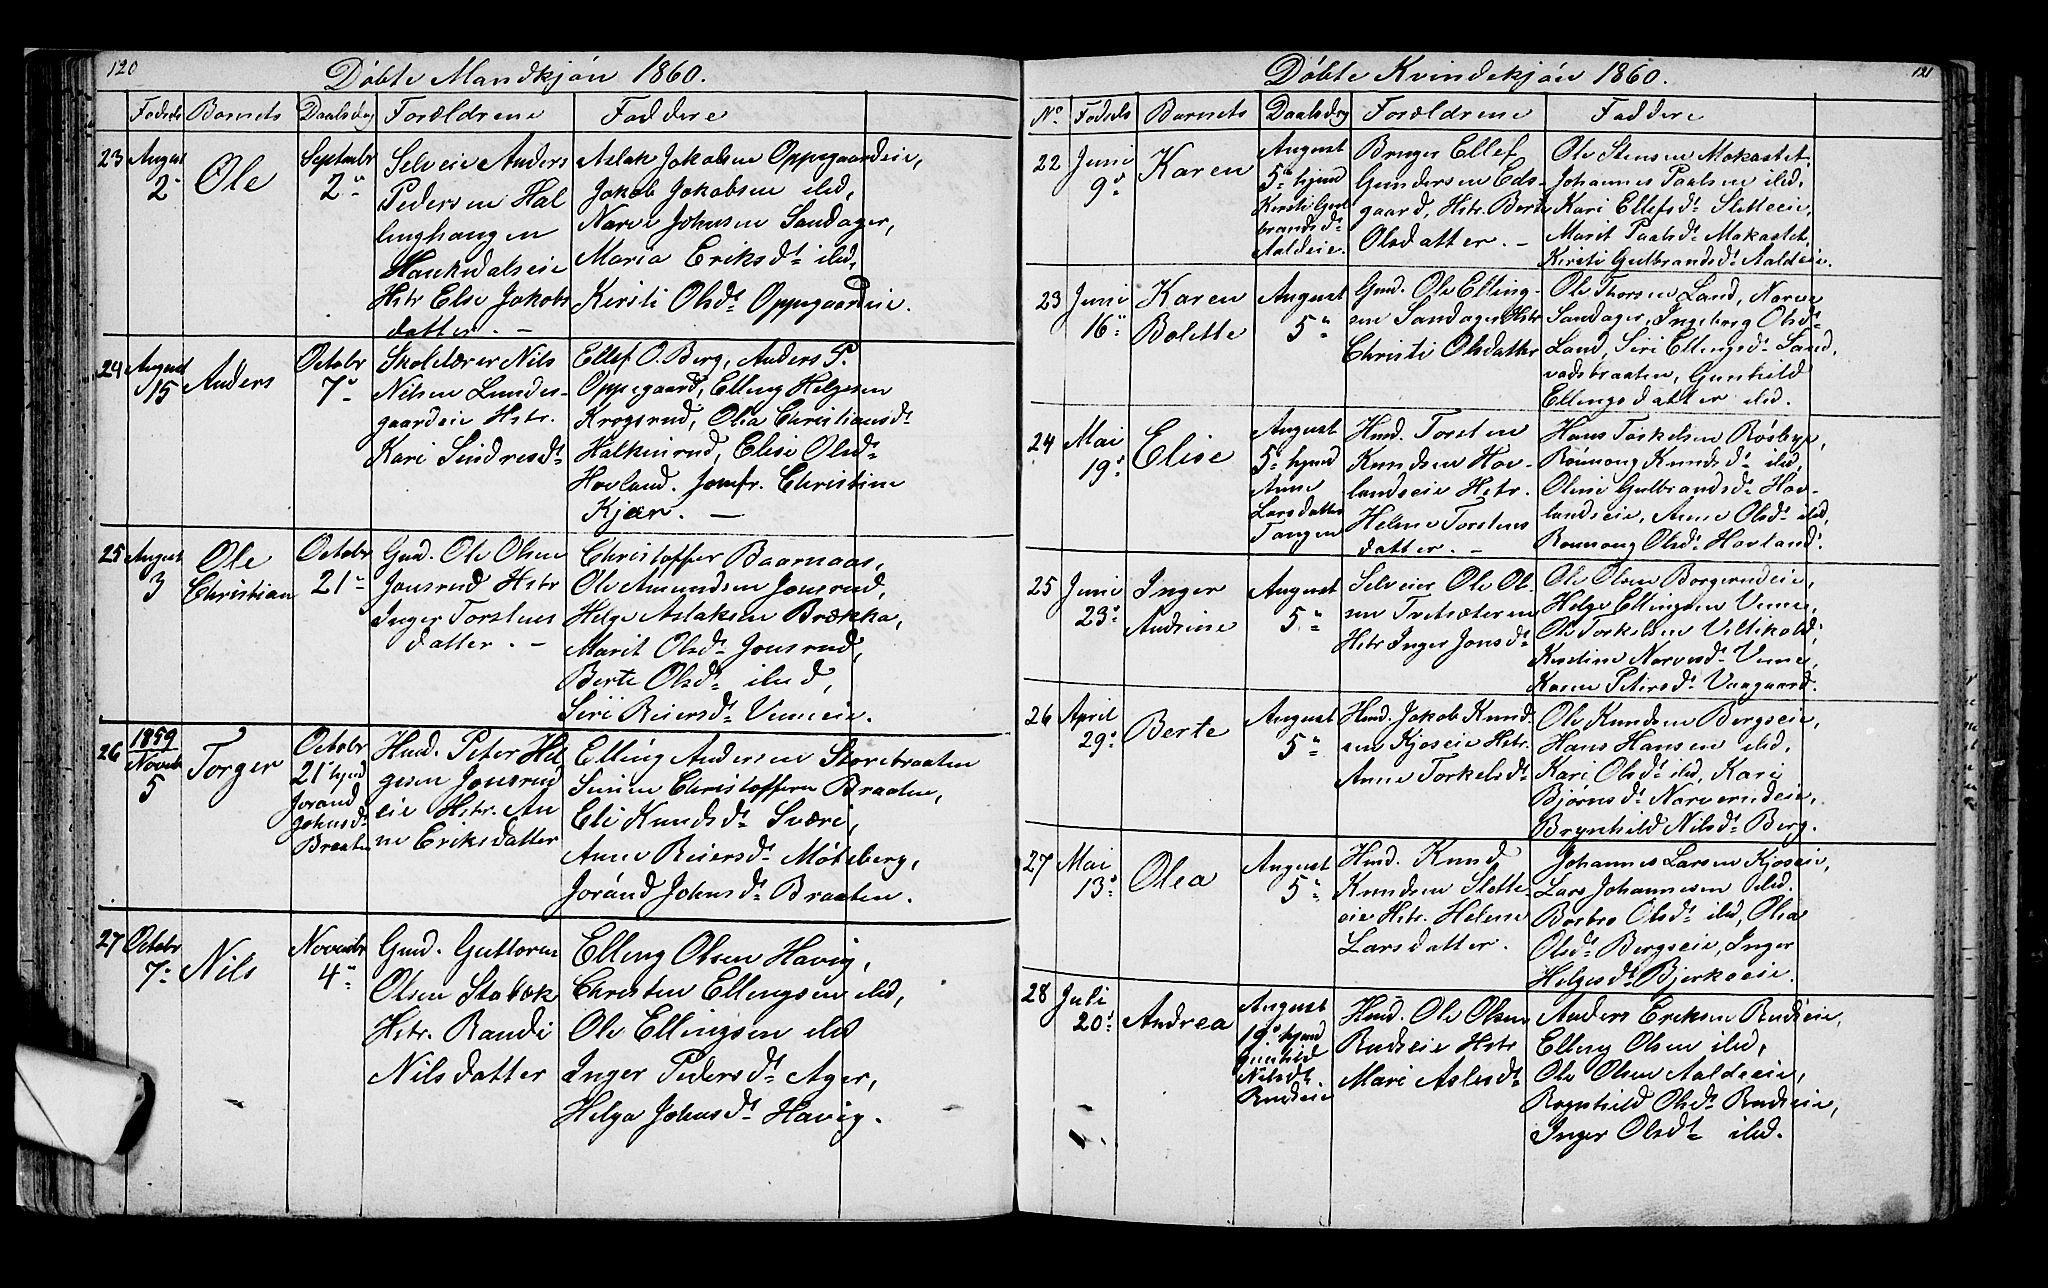 120
Döbte Mandkjön 1860.
Fødsels Barnets Daabsdag Forældrene Faddere
23 August 2 Ole Septembr 2
Selveier Anders
Pedersen Hal
linghaugen
Haukedalseie
Hstr Else Jakobs
datter. –
Aslak Jakobsen Oppegaardeie,
Jakob Jakobsen ibid,
Narve Johnsen Sandager,
Maria Eriksdt ibid,
Kirsti Olsdt Oppegaardeie.
24 August 15 Anders Octobr 7
Skolelærer Nils
Nilsen Lundes-
gaardeie Hstr.
Kari Sindresdt
Ellef O. Berg, Anders P.
Oppegaard, Elling Helgesen
Krogsrud, Olea Christiansdt
Halkinrud, Elise Olsdt
Hovland. Jomfr. Christine
Kjær. –
25 August 3 Ole Christian Octobr 21
Gmd. Ole Olsen
Jonsrud Hstr
Inger Torstens
datter. –
Christoffer Baarnaas,
Ole Amundsen Jonsrud,
Helge Aslaksen Brækka,
Marit Olsdt Jonsrud,
Berte Olsdt ibid,
Siri Reiersdt Vemeie.
26 1859 Novbr 5 Torger
Octobr
21 hjmd
Jorand
Johnsdt
Braaten
Husmd. Peter Hel
gesen Jonsrud
eie Hstr. An
ne Eriksdatter
Elling Andersen Storebraaten
Simen Christoffersen Braaten,
Eli Knudsdt Sværi,
Anne Reiersdt Møtsberg,
Jorånd Johnsdt Braaten.
27 Octobr 7 Nils Novembr 4
Gmd. Guttorm
Olsen Stabæk
Hstr. Randi
Nilsdatter
Elling Olsen Havig,
Christen Ellingsen ibid,
Ole Ellingsen ibid
Inger Pedersdt Ager,
Helga Johnsdt Havig.
121
Döbte Kvindekjön 1860.
No Fødsels Barnets Daabsdag Forældrene Faddere
22 Juni 9 Karen
August
5 hjmd
Kirsti Gul
brandsdt
Aaldeie.
Bruger Ellef
Gundersen Eds-
gaard, Hstr. Berte
Olsdatter. –
Ole Stensen Makastet,
Johannes Paalsen ibid,
Kari Ellefsdt Sletteeie,
Marit Paalsdt Makastet,
Kirsti Gulbrandsdt Aaldeie.
23 Juni 16 Karen Bolette August 5
Gmd. Ole Elling-
sen Sandager Hstr
Christi Olsdatter
Ole Thorsen Land, Narve
Sandager, Ingeborg Olsdt
Land, Siri Ellingsdt Sand,
vadsbraaten, Gunhild
Ellingsdatter ibid.
24 Mai 19 Elise
August
5 hjmd
Anne
Larsdatter
Tangen
Hmd. Torsten
Knudsen Hov-
landseie Hstr.
Helene Torstens
datter. –
Hans Torkelsen Rösbye,
Rønnoug Knudsdt ibid,
Oline Gulbrandsdt Hov-
landseie, Anne Olsdt ibid,
Rønnoug Olsdt Hovland.
25 Juni 23 Inger Andrine August 5
Selveier Ole Ol-
sen Tretsæteren
Hstr Inger Jonsdt
Ole Olsen Borgerudeie,
Helge Ellingsen Veme,
Ole Torkelsen Veltikold,
Kirstine Narvesdt Veme,
Karen Petersdt Vaagaard.
26 April 29 Berte August 5
Hmd. Jakob Knud-
sen Kjoseie Hstr.
Anne Torkelsdt
Ole Knudsen Bergseie,
Hans Hansen ibid,
Kari Olsdt ibid, Kari
Bjørnsdt Narverudeie,
Brynhild Nilsdt Berg.
27 Mai 13 Olea August 5
Hmd. Knud
Knudsen Slette-
eie Hstr. Helene
Larsdatter.
Johannes Larsen Kjoseie,
Lars Johannesen ibid.
Barbro Olsdt ibid, Olea
Olsdt Bergseie, Inger
Helgesdt Bjerkeeie.
28 Juli 20 Andrea
August
19 hjmd
Gunhild
Nilsdt
Rudseie
Hmd. Ole Olsen
Rudseie Hstr
Mari Aslesdt
Anders Eriksen Rudseie,
Elling Olsen ibid,
Ole Olsen Aaldseie,
Ragnhild Olsdt Rudseie,
Inger Olsdt ibid.